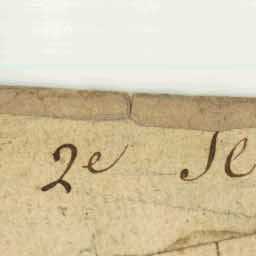 2e Se